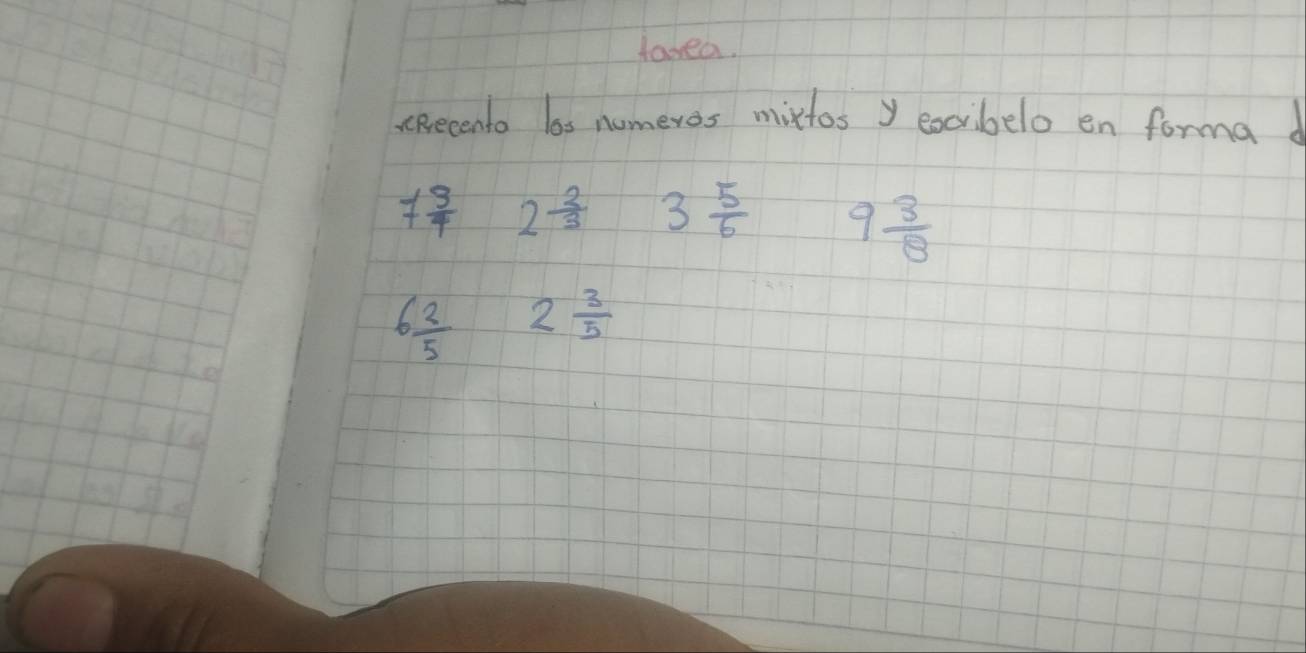 tarea.
Recento los numeros mixtos y escribelo en forma d
7 3/4 2 2/3 3 5/6 9 3/8
6 2/5 2 3/5